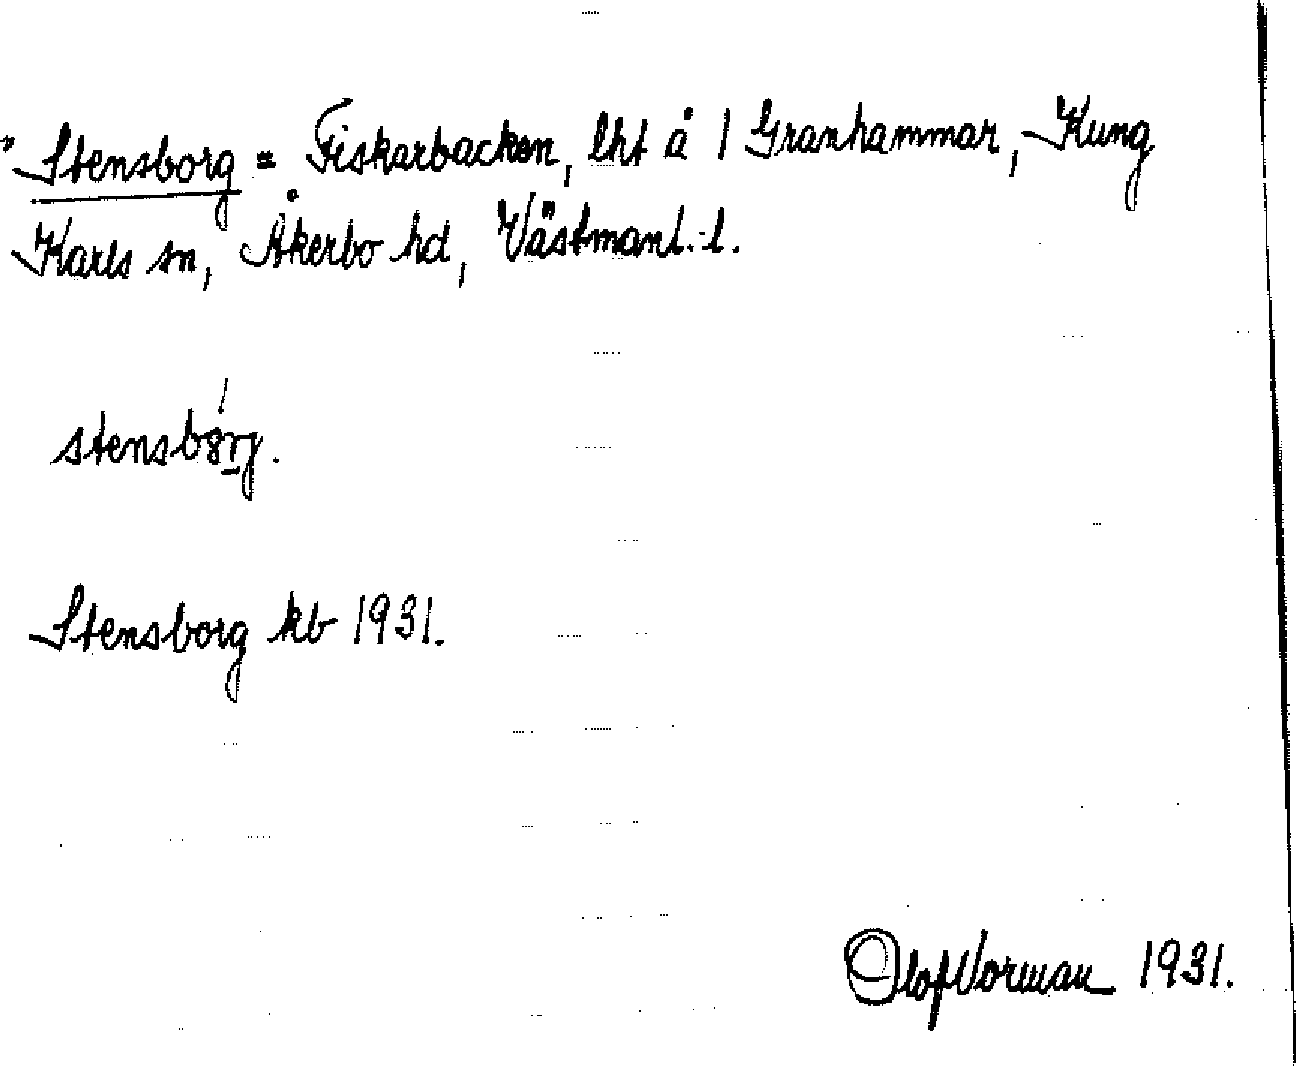 "Stensborg = Fiskarbacken, lht å 1 Granhammar, Kung
Karls sn, Åkerbo hd, Västmanl. l.
Stensborg kb 1931.
Olof Vorman 1931.